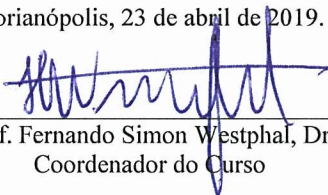 orianópolis, 23 de abril de 2019.
f. Fernando Simon Westphal, Dr
Coordenador do Curso